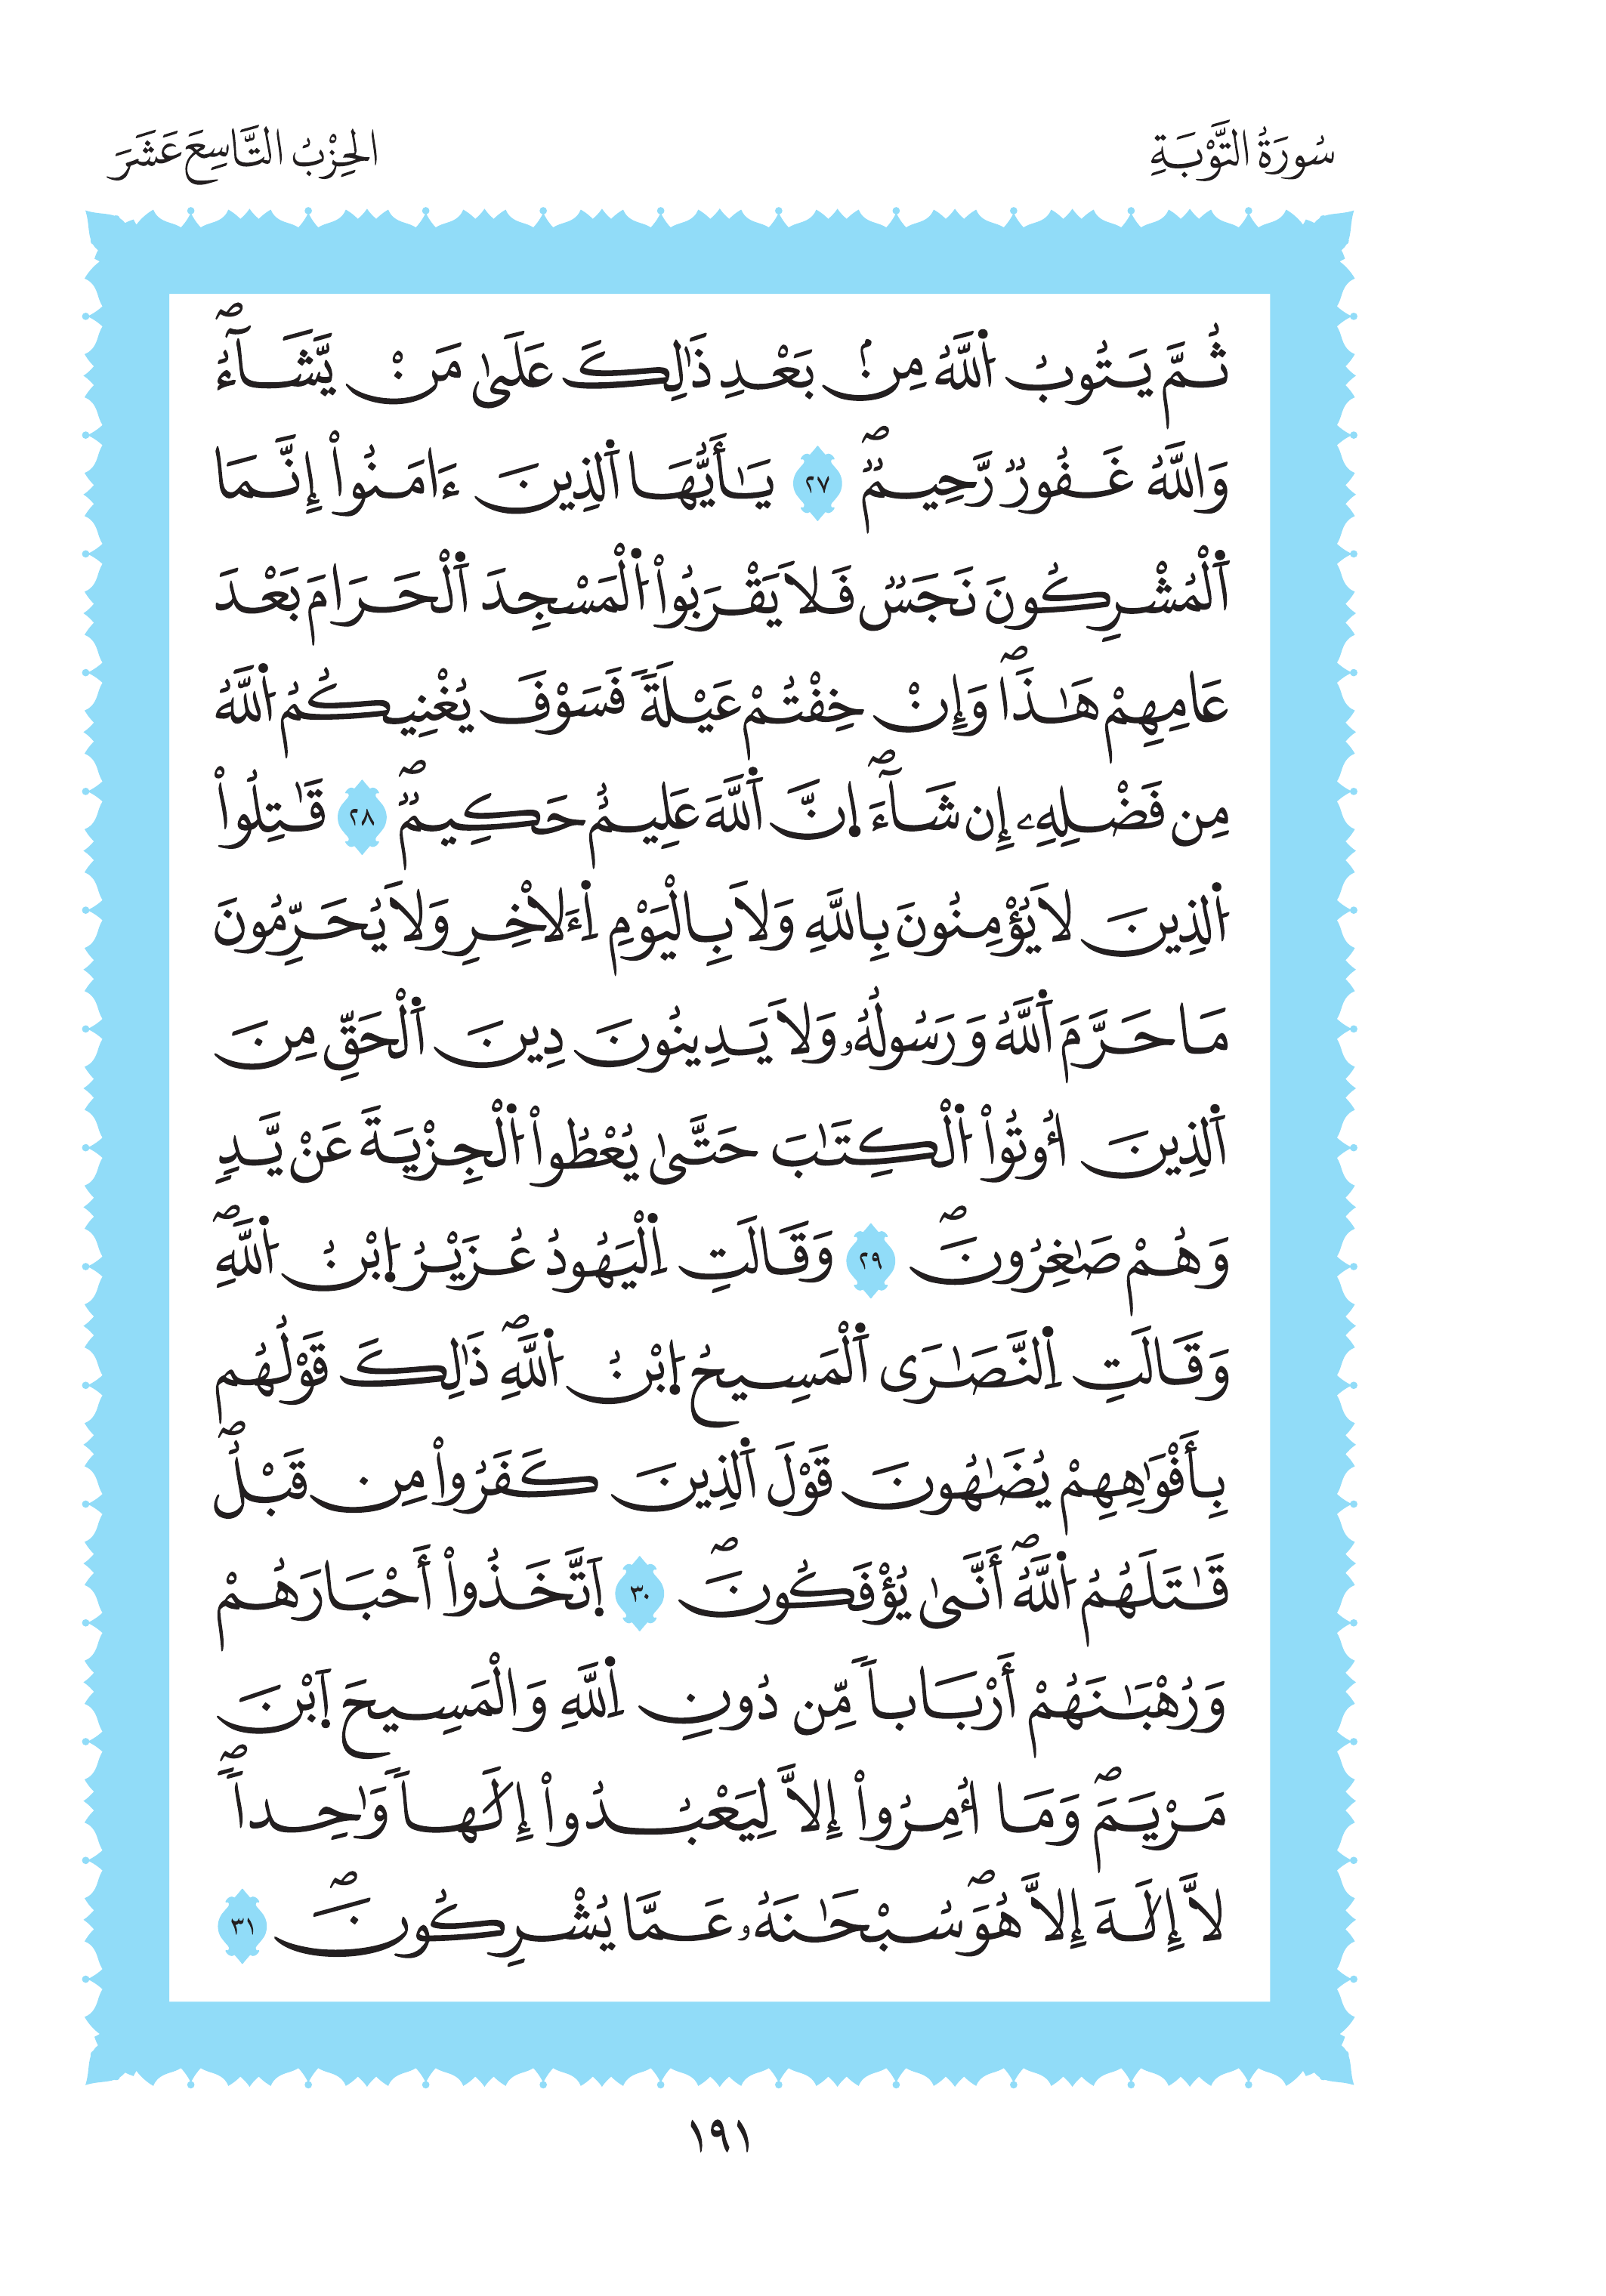 سُورَةُ التَّوْبَةِ
الحِزْبُ التَّاسِعَ عَشَرَ
ثُمَّ يَتُوبُ اُ۬للَّهُ مِنۢ بَعْدِ ذَٰلِكَ عَلَىٰ مَنْ يَّشَآءُۖ
وَاللَّهُ غَفُورٌ رَّحِيمٌۖ ٢٧ يَٰأَيُّهَا اَ۬لذِينَ ءَامَنُواْ إِنَّمَا
اَ۬لْمُشْرِكُونَ نَجَسٌ فَلاَ يَقْرَبُواْ اُ۬لْمَسْجِدَ اَ۬لْحَرَامَ بَعْدَ
عَامِهِمْ هَٰذَاۖ وَإِنْ خِفْتُمْ عَيْلَةً فَسَوْفَ يُغْنِيكُمُ اُ۬للَّهُ
مِن فَضْلِهِۦ إِن شَآءَۖ اِ۪نَّ اَ۬للَّهَ عَلِيمٌ حَكِيمٌۖ ٢٨ قَٰتِلُواْ
اُ۬لذِينَ لاَ يُؤْمِنُونَ بِاللَّهِ وَلاَ بِالْيَوْمِ اِ۬ءَلاْخِرِ وَلاَ يُحَرِّمُونَ
مَا حَرَّمَ اَ۬للَّهُ وَرَسُولُهُۥ وَلاَ يَدِينُونَ دِينَ اَ۬لْحَقِّ مِنَ
اَ۬لذِينَ أُوتُواْ اُ۬لْكِتَٰبَ حَتَّىٰ يُعْطُواْ اُ۬لْجِزْيَةَ عَنْ يَّدٍ
وَهُمْ صَٰغِرُونَۖ ٢٩ وَقَالَتِ اِ۬لْيَهُودُ عُزَيْرُ اُ۪بْنُ اُ۬للَّهِۖ
وَقَالَتِ اِ۬لنَّصَٰرَى اَ۬لْمَسِيحُ اُ۪بْنُ اُ۬للَّهِۖ ذَٰلِكَ قَوْلُهُم
بِأَفْوَٰهِهِمْ يُضَٰهُونَ قَوْلَ اَ۬لذِينَ كَفَرُواْ مِن قَبْلُۖ
قَٰتَلَهُمُ اُ۬للَّهُۖ أَنَّىٰ يُؤْفَكُونَۖ ٣٠ اَ۪تَّخَذُواْ أَحْبَارَهُمْ
وَرُهْبَٰنَهُمْ أَرْبَاباً مِّن دُونِ اِ۬للَّهِ وَالْمَسِيحَ اَ۪بْنَ
مَرْيَمَۖ وَمَا أُمِرُواْ إِلاَّ لِيَعْبُدُواْ إِلَٰهاً وَٰحِداًۖ
لاَّ إِلَٰهَ إِلاَّ هُوَۖ سُبْحَٰنَهُۥ عَمَّا يُشْرِكُونَۖ ٣١
١٩١